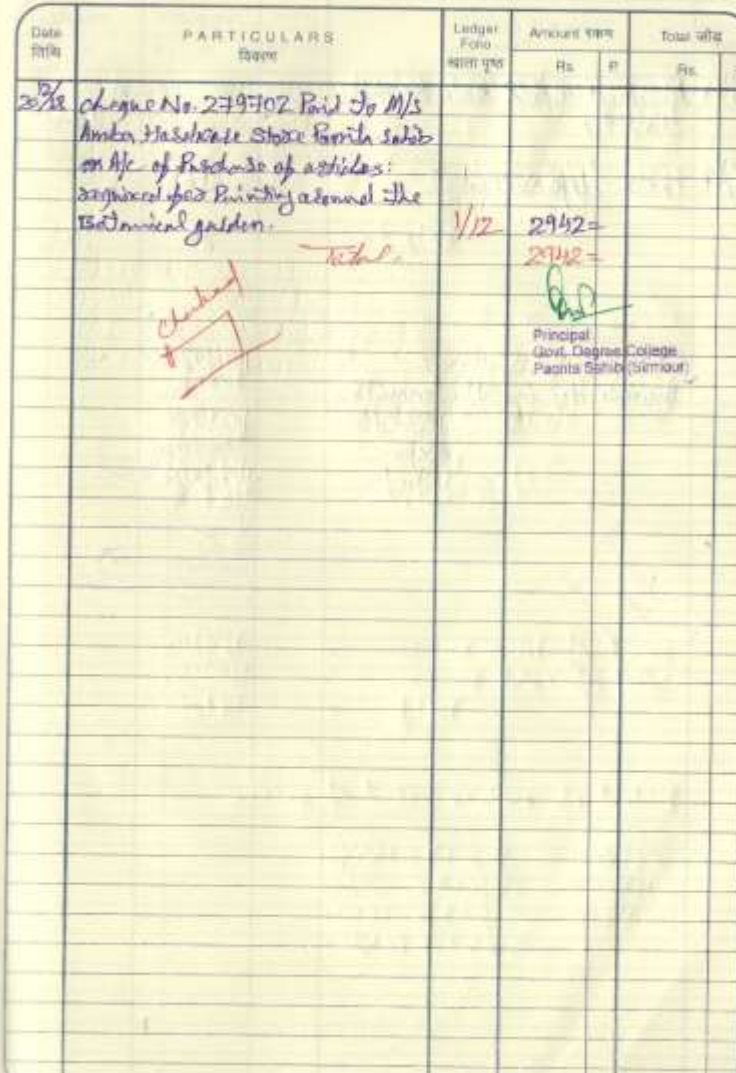 Date PARTICULARS Ledger Folio Amount रकम Total जोड़
तिथि विवरण खाता पृष्ठ Rs. P. Rs.
20/12/18 Cheque No. 279702 Paid to M/s
Amba Hardware Store Paonta Sahib
on A/c of Purchase of articles
required for Painting around the
Botanical garden. 1/12 2942=
Total. 2942=
Checked
Principal
Govt. Degree College
Paonta Sahib (Sirmour)